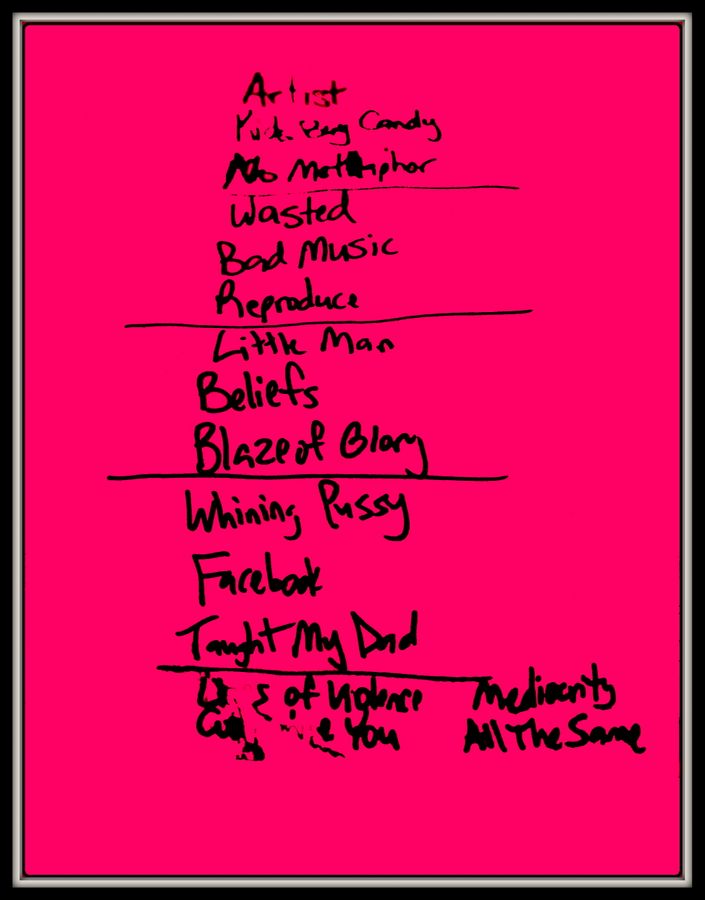 Artist
Candy
No Metaphor
Wasted
Bad Music
Reproduce
Little Man
Beliefs
Blaze of Glory
Whining Pussy
Facebook
Taught My Dad
of Violence Mediocrity
You All The Same